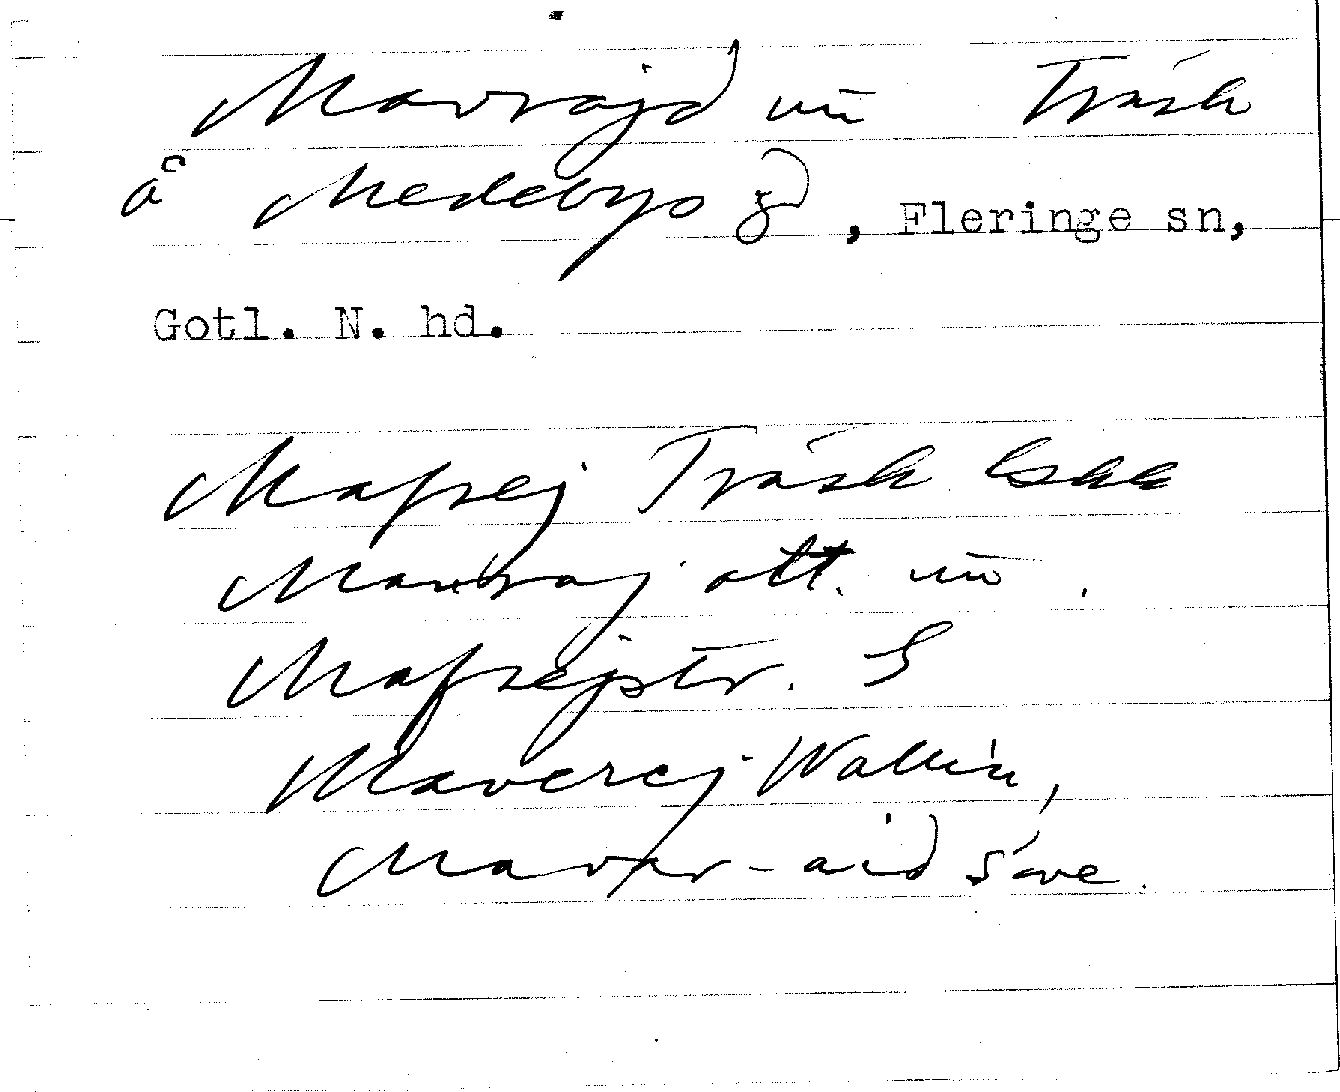 Mavrajd un Träsk
å Medebys gd, Fleringe sn,
Gotl. N. hd.
Mafrej Träsk
Mavraj att. un.
Mafrejstr. S
Maverej Wallin,
Mavr-aid Säve.